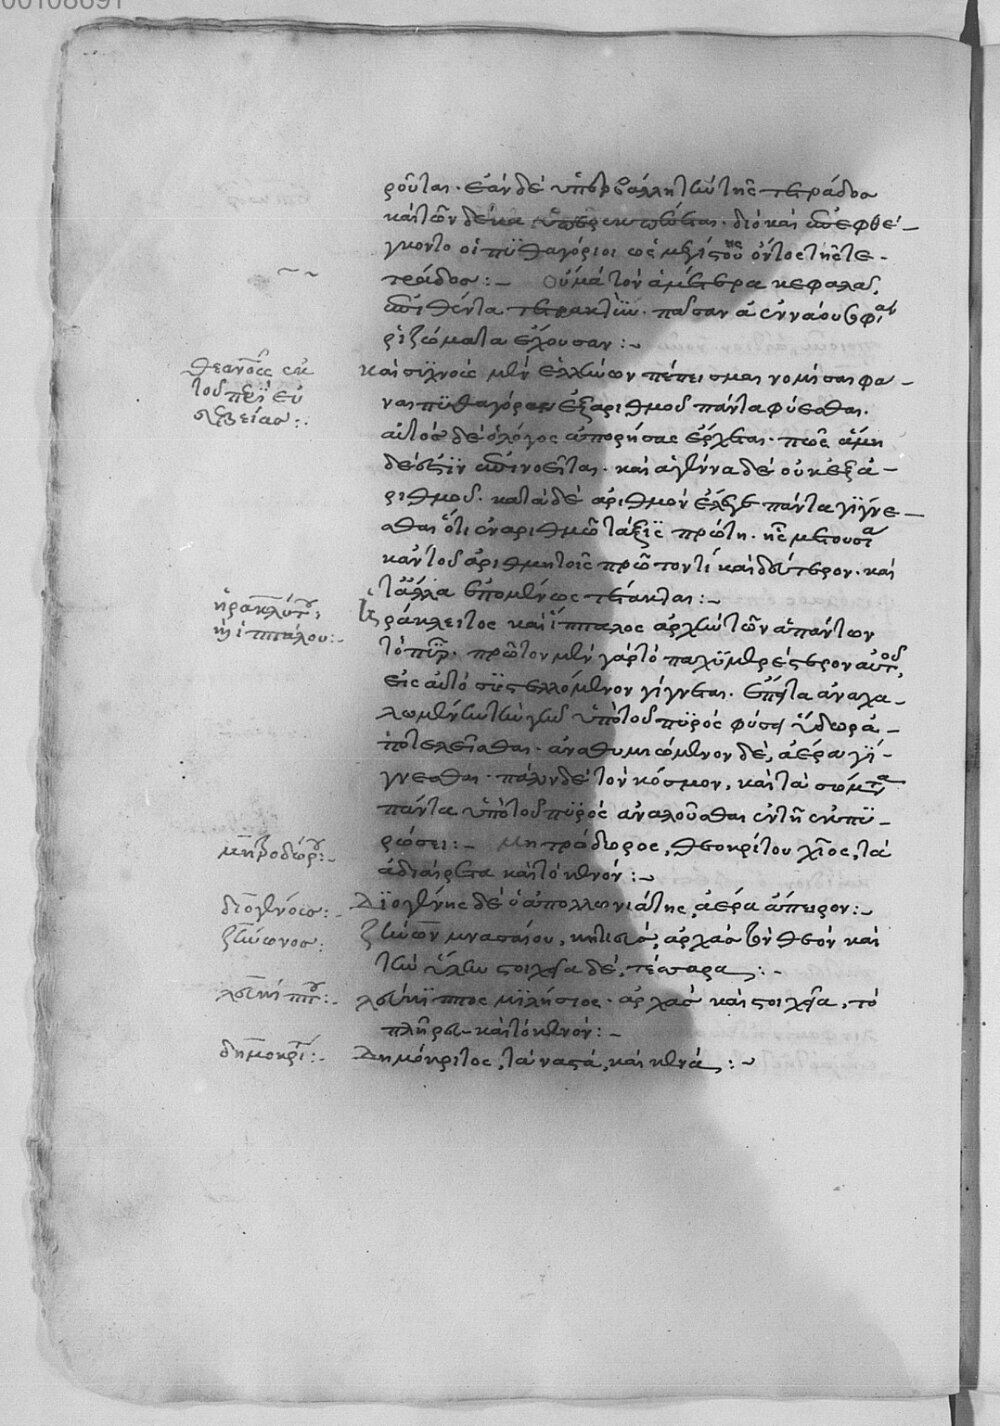 00108691
ροῦται· ἐὰν δὲ ὑπερβάλλῃ τις τῆς τετράδος
καὶ τῶν δέκα ὑπερεκπεσεῖται· διὸ καὶ ἐπεφθέ-
γγοντο οἱ πυθαγόριοι ὡς μεγίστου ὅρκου ὄντος τῆς τε-
τράδος:- οὐ μὰ τὸν ἁμετέρα κεφαλᾶ,
παραδόντα τετρακτὺν· παγὰν ἀεννάου φύσεως
ῥιζώματα ἔχουσαν:-
θεανοῦς ἐκ
τοῦ περὶ εὐ
σεβείας:
καὶ συχνοὺς μὲν ἑλλήνων πέπεισμαι νομίσαι φά-
ναι πυθαγόραν ἐξ ἀριθμοῦ πάντα φύεσθαι.
αὐτὸς δὲ ὁ λόγος ἀπορήσας ἔρχεται· πῶς ἃ μη
δέ ἐστιν ἐπινοεῖται· καὶ ἃ γεννᾶ δὲ οὐκ ἐξ ἀ-
ριθμοῦ· κατὰ δὲ ἀριθμὸν ἔλεγε πάντα γίγνε-
σθαι ὅτι ἐν ἀριθμῷ τάξις πρώτη· ἧς μετουσία
κἀν τοῖς ἀριθμητοῖς πρῶτόν τι καὶ δεύτερον· καὶ
τἄλλα ἑπομένως τέτακται:-
ἡρακλείτου,
ἢ ἱππάλου:-
ἡράκλειτος καὶ ἵππαλος ἀρχὴν τῶν ἁπάντων
τὸ πῦρ· πρῶτον μὲν γὰρ τὸ παχυμερέστερον αὐτοῦ,
εἰς αὐτὸ συστελλόμενον γίγνεται. ἔπειτα ἀναχα-
λωμένην τὴν γῆν ὑπὸ τοῦ πυρός φύσει ὕδωρ ἀ-
ποτελεῖσθαι· ἀναθυμιώμενον δὲ, ἀέρα γί-
γνεσθαι· πάλιν δὲ τὸν κόσμον, καὶ τὰ σώματα
πάντα ὑπὸ τοῦ πυρὸς ἀναλοῦσθαι ἐν τῇ ἐκπυ-
μητροδώρου:-
ρώσει:- μητρόδωρος, θεοκρίτου χῖος, τὰ
ἀδιαίρετα καὶ τὸ κενόν:-
διογένους:-
Διογένης δὲ ὁ ἀπολλωνιάτης, ἀέρα ἄπειρον:-
ζήνωνος:
ζήνων μνασαίου, κητιεύς, ἀρχὰς τὸν θεὸν καὶ
τὴν ὕλην στοιχεῖα δὲ, τέσσαρα:-
λευκίππου:-
λεύκιππος μιλήσιος· ἀρχὰς καὶ στοιχεῖα, τὸ
πλῆρες καὶ τὸ κενόν:-
δημοκρίτου:-
Δημόκριτος, τὰ ναστὰ, καὶ κενά:-